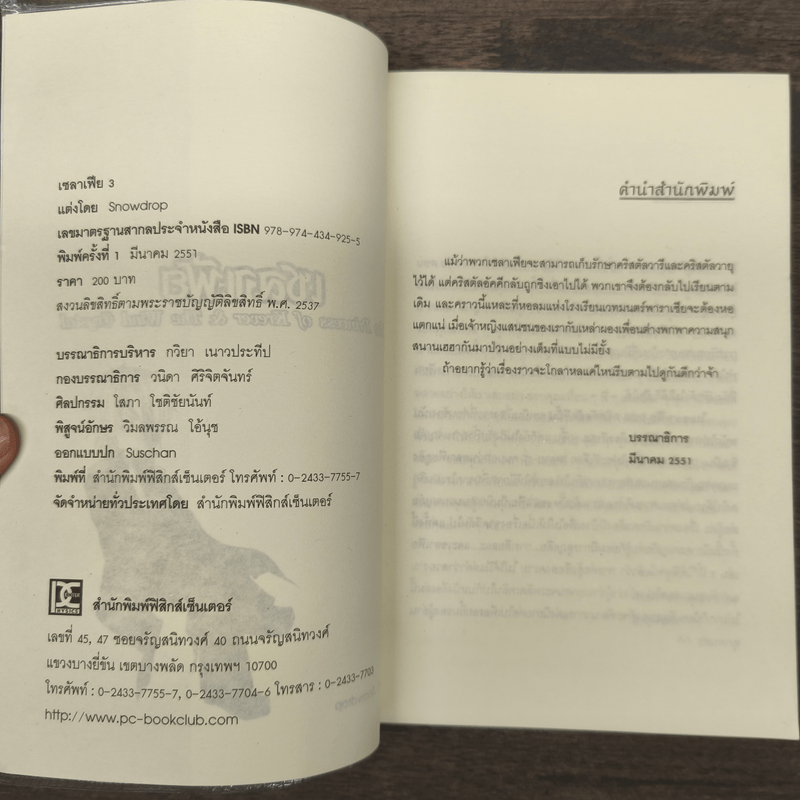 เซลาเฟีย 3
แต่งโดย Snowdrop
เลขมาตรฐานสากลประจำหนังสือ ISBN 978-974-434-925-5
พิมพ์ครั้งที่ 1 มีนาคม 2551
ราคา 200 บาท
สงวนลิขสิทธิ์ตามพระราชบัญญัติลิขสิทธิ์ พ.ศ. 2537
บรรณาธิการบริหาร กวิยา เนาวประทีป
กองบรรณาธิการ วนิดา ศิริจิตจันทร์
ศิลปกรรม โสภา โชติชัยนันท์
พิสูจน์อักษร วิมลพรรณ โอ้นุช
ออกแบบปก Suschan
พิมพ์ที่ สำนักพิมพ์ฟิสิกส์เซ็นเตอร์ โทรศัพท์ : 0-2433-7755-7
จัดจำหน่ายทั่วประเทศโดย สำนักพิมพ์ฟิสิกส์เซ็นเตอร์
สำนักพิมพ์ฟิสิกส์เซ็นเตอร์
เลขที่ 45, 47 ซอยจรัญสนิทวงศ์ 40 ถนนจรัญสนิทวงศ์
แขวงบางยี่ขัน เขตบางพลัด กรุงเทพฯ 10700
โทรศัพท์ : 0-2433-7755-7, 0-2433-7704-6 โทรสาร : 0-2433-7703
http://www.pc-bookclub.com
คำนำสำนักพิมพ์
แม้ว่าพวกเซลาเฟียจะสามารถเก็บรักษาคริสตัลวารีและคริสตัลวายุ
ไว้ได้ แต่คริสตัลอัคคีกลับถูกชิงเอาไปได้ พวกเขาจึงต้องกลับไปเรียนตาม
เดิม และคราวนี้แหละที่หอลมแห่งโรงเรียนเวทมนตร์พาราเซียจะต้องหอ
แตกแน่ เมื่อเจ้าหญิงแสนซนของเรากับเหล่าผองเพื่อนต่างพกพาความสนุก
สนานเฮฮากันมาป่วนอย่างเต็มที่แบบไม่มียั้ง
ถ้าอยากรู้ว่าเรื่องราวจะโกลาหลแค่ไหนรีบตามไปดูกันดีกว่าจ้า
บรรณาธิการ
มีนาคม 2551